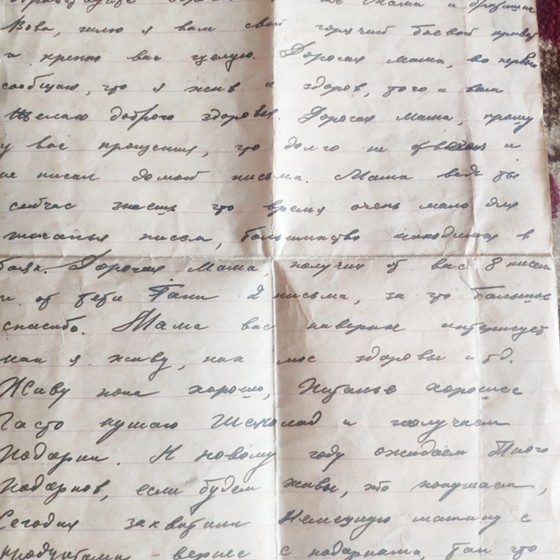 Мама и братишка
Вова, шлю я вам свой горячий боевой привет
и крепко вас целую. Дорогая мама, во первых
сообщаю, что я жив и здоров, того и вам
желаю доброго здоровья. Дорогая мама, прошу
у вас прощения, что долго не отвечал и
не писал домой письма. Мама ведь ты
сейчас знаешь что время очень мало для
писанья писем, большинство находишся в
боях. Дорогая Мама получил от вас 8 писем
и от тети Гани 2 письма, за что большое
спасибо. Мама вас наверное интересует
как я живу, как мое здоровье и т.д.
Живу пока хорошо, Питанье хорошее
Часто кушаю Шеколад и получаем
Подарки. К новому году ожидаем Много
Подарков, если будем живы, то покушаем,
Сегодня захватили Немецкую машину с
продуктами - вернее с подарками, так что